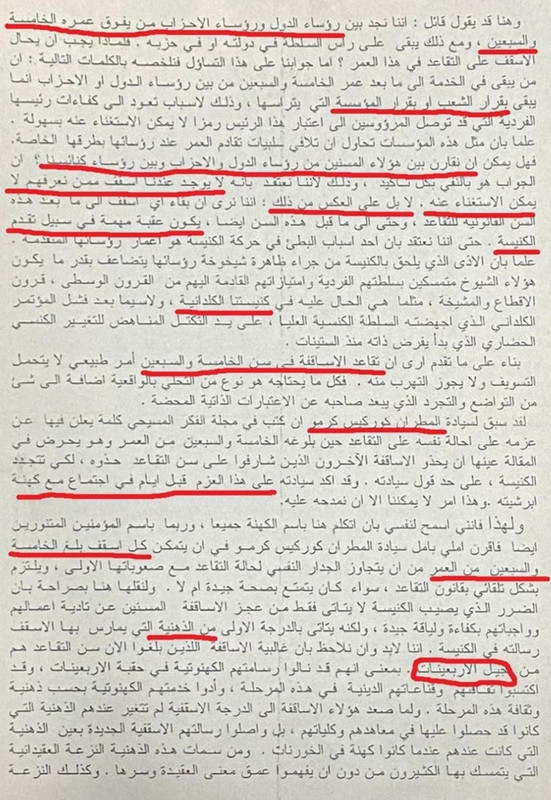 وهنا قد يقول قائل : اننا نجد بين رؤساء الدول ورؤساء الاحزاب من يفوق عمره الخامسة
والسبعين ، ومع ذلك يبقى على رأس السلطة في دولته او في حزبه . فلماذا يجب ان يحال
الاسقف على التقاعد في هذا العمر ؟ اما جوابنا على هذا التساؤل فنلخصه بالكلمات التالية : ان
من يبقى في الخدمة الى ما بعد عمر الخامسة والسبعين من بين رؤساء الدول او الاحزاب انما
يبقى بقرار الشعب او بقرار المؤسسة التي يترأسها ، وذلك لاسباب تعود الى كفاءات رئيسها
الفردية التي قد توصل المرؤوسين الى اعتبار هذا الرئيس رمزا لا يمكن الاستغناء عنه بسهولة .
علما بان مثل هذه المؤسسات تحاول ان تلافي سلبيات تقادم العمر عند رؤسائها بطرقها الخاصة.
فهل يمكن ان نقارن بين هؤلاء المسنين من رؤساء الدول والاحزاب وبين رؤساء كنائسنا ؟ ان
الجواب هو بالنفي بكل تأكيد ، وذلك لأننا نعتقد بأنه لا يوجد عندنا اسقف ممن نعرفهم لا
يمكن الاستغناء عنه . لا بل على العكس من ذلك : اننا نرى ان بقاء أي اسقف الى ما بعد هذه
السن القانونية للتقاعد ، وحتى الى ما قبل هذه السن ايضا ، يكون عقبة مهمة في سبيل تقدم
الكنيسة . حتى اننا نعتقد بان احد اسباب البطئ في حركة الكنيسة هو اعمار رؤسائها المتقدمة .
علما بأن الاذى الذي يلحق بالكنيسة من جراء ظاهرة شيخوخة رؤسائها يتضاعف بقدر ما يكون
هؤلاء الشيوخ متمسكين بسلطتهم الفردية وامتيازاتهم القادمة اليهم من القرون الوسطى ، قرون
الاقطاع والمشيخة ، مثلما هي الحال عليه في كنيستنا الكلدانية ، ولاسيما بعد فشل المؤتمر
الكلداني الذي اجهضته السلطة الكنسية العليا ، على يد التكتل المناهض للتغيير الكنسي
الحضاري الذي بدأ يفرض ذاته منذ الستينات .
بناء على ما تقدم ارى ان تقاعد الاساقفة في سن الخامسة والسبعين أمر طبيعي لا يتحمل
التسويف ولا يجوز التهرب منه . فكل ما يحتاجه هو نوع من التحلي بالواقعية اضافة الى شئ
من التواضع والتجرد الذي يبعد صاحبه عن الاعتبارات الذاتية المحضة .
لقد سبق لسيادة المطران كوركيس كرمو ان كتب في مجلة الفكر المسيحي كلمة يعلن فيها عن
عزمه على احالة نفسه على التقاعد حين بلوغه الخامسة والسبعين من العمر وهو يحرض في
المقالة عينها ان يحذو الاساقفة الآخرون الذين شارفوا على سن التقاعد حذوه ، لكي تتجدد
الكنيسة ، على حد قول سيادته . وقد اكد سيادته على هذا العزم قبل ايام في اجتماع مع كهنة
ابرشيته .وهذا امر لا يمكننا الا ان نمدحه عليه.
ولهذا فانني اسمح لنفسي بان اتكلم هنا باسم الكهنة جميعا ، وربما باسم المؤمنين المتنورين
ايضا فاقرن املي بامل سيادة المطران كوركيس كرمو في ان يتمكن كل اسقف بلغ الخامسة
والسبعين من العمر من ان يتجاوز الجدار النفسي لحالة التقاعد مع صعوباتها الاولى ، ويلتزم
بشكل تلقائي بقانون التقاعد ، سواء كان يتمتع بصحة جيدة ام لا . ولنقلها هنا بصراحة بان
الضرر الذي يصيب الكنيسة لا يتاتى فقط من عجز الاساقفة المسنين عن تادية اعمالهم
وواجباتهم بكفاءة ولياقة جيدة ، ولكنه يتاتى بالدرجة الاولى من الذهنية التي يمارس بها الاسقف
رسالته في الكنيسة . اننا لابد وان نلاحظ بان غالبية الاساقفة اللذين بلغوا الان سن التقاعد هم
من جيل الاربعينات . بمعنى انهم قد نالوا رسامتهم الكهنوتية في حقبة الاربعينات ، وقد
اكتسبوا ثقافتهم وقناعاتهم الدينية في هذه المرحلة ، وأدوا خدمتهم الكهنوتية بحسب ذهنية
وثقافة هذه المرحلة . ولما صعد هؤلاء الاساقفة الى الدرجة الاسقفية لم تتغير عندهم الذهنية التي
كانوا قد حصلوا عليها في معاهدهم وكلياتهم ، بل واصلوا رسالتهم الاسقفية الجديدة بعين الذهنية
التي كانت عندهم عندما كانوا كهنة في الخورنات . ومن سمات هذه الذهنية النزعة العقيدانية
التي يتمسك بها الكثيرون من دون ان يفهموا عمق معنى العقيدة وسرها . وكذلك النزعة